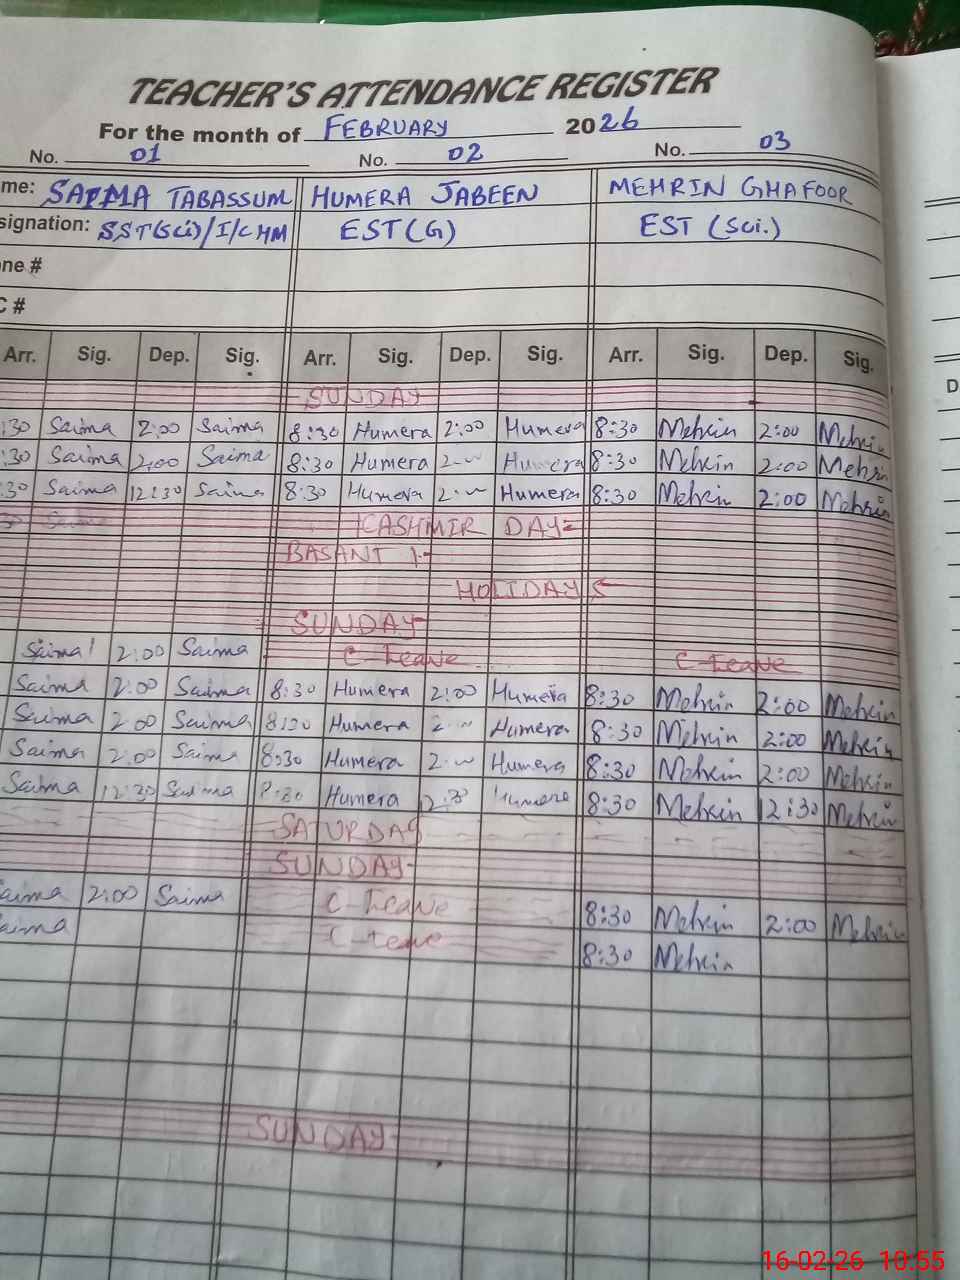 TEACHER'S ATTENDANCE REGISTER
For the month of FEBRUARY 2026
No. 01 No. 02 No. 03
me: SAIMA TABASSUM HUMERA JABEEN MEHRIN GHAFOOR
signation: SST(Sci)/I/C HM EST(G) EST (Sci.)
ne #
C #
Arr. Sig. Dep. Sig. Arr. Sig. Dep. Sig. Arr. Sig. Dep. Sig.
D
SUNDAY
:30 Saima 2:00 Saima 8:30 Humera 2:00 Humera 8:30 Mehrin 2:00 Mehrin
:30 Saima 2:00 Saima 8:30 Humera 2- Humera 8:30 Mehrin 2:00 Mehrin
30 Saima 12:30 Saima 8:30 Humera 2- Humera 8:30 Mehrin 2:00 Mehrin
KASHMIR DAY
BASANT
HOLIDAYS
SUNDAY
Saima 2:00 Saima C-Leave C-Leave
Saima 2:00 Saima 8:30 Humera 2:00 Humera 8:30 Mehrin 2:00 Mehrin
Saima 2:00 Saima 8:30 Humera 2- Humera 8:30 Mehrin 2:00 Mehrin
Saima 2:00 Saima 8:30 Humera 2- Humera 8:30 Mehrin 2:00 Mehrin
Saima 12:30 Saima 8:30 Humera 12:30 Humera 8:30 Mehrin 12:30 Mehrin
SATURDAY
SUNDAY
aima 2:00 Saima C-Leave 8:30 Mehrin 2:00 Mehrin
aima C-Leave 8:30 Mehrin
SUNDAY
16-02-26 10:55